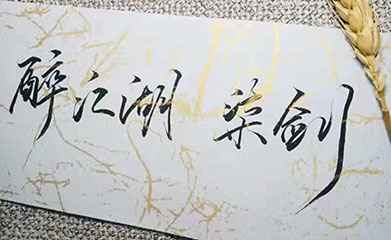 醉江湖 柒剑